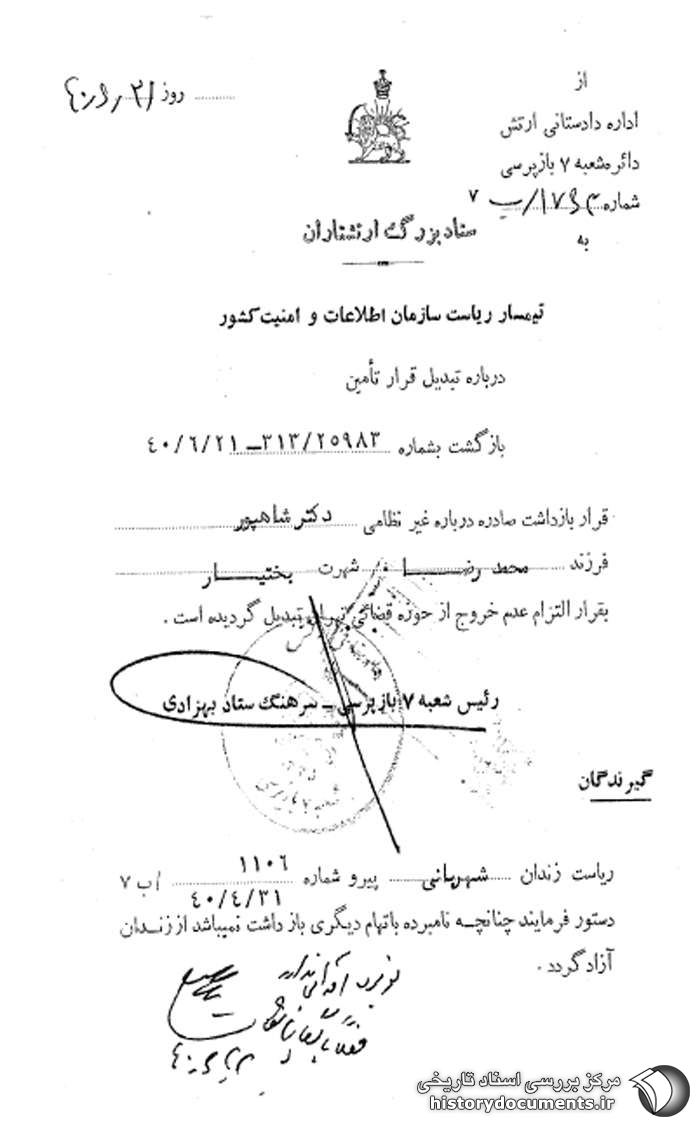 از
اداره دادستانی ارتش
دائره شعبه ۷ بازپرسی
شماره ۱۷۶۳/ب ۷
به
روز
ستاد بزرگ ارتشتاران
تیمسار ریاست سازمان اطلاعات و امنیت کشور
درباره تبدیل قرار تأمین
بازگشت بشماره ۳۱۳/۲۵۹۸۳ ــ ۴۰/۶/۲۱
قرار بازداشت صادره درباره غیر نظامی دکتر شاهپور
فرزند محمد رضا شهرت بختیار
بقرار التزام عدم خروج از حوزه قضائی تهران تبدیل گردیده است .
رئیس شعبه ۷ بازپرسی ــ سرهنگ ستاد بهزادی
گیرندگان
ریاست زندان شهربانی پیرو شماره ۱۱۰۶ /ب ۷
۴۰/۴/۳۱
دستور فرمایند چنانچه نامبرده باتهام دیگری بازداشت نمیباشد از زندان
آزاد گردد .
مرکز بررسی اسناد تاریخی
historydocuments.ir